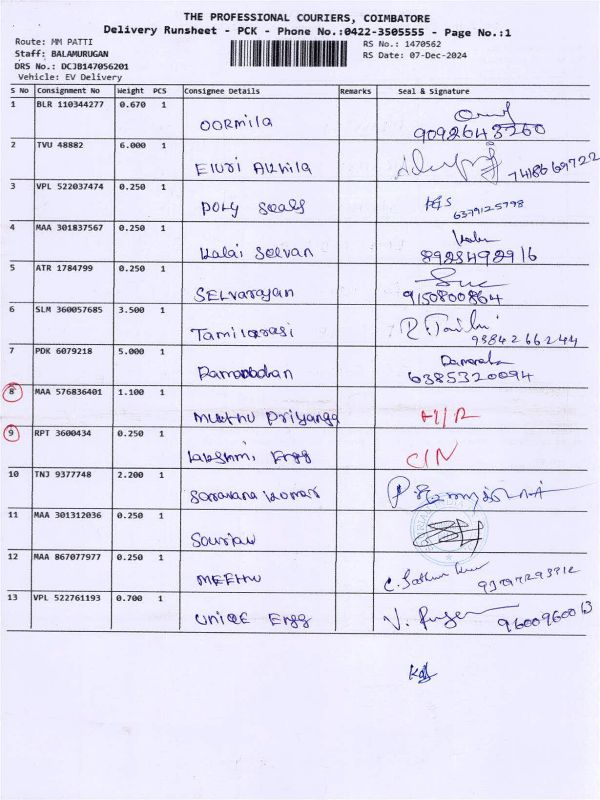 THE PROFESSIONAL COURIERS, COIMBATORE
Delivery Runsheet - PCK - Phone No.:0422-3505555 - Page No.:1
Route: MM PATTI RS No.: 1470562
Staff: BALAMURUGAN RS Date: 07-Dec-2024
DRS No.: DCJB147056201
Vehicle: EV Delivery
S No Consignment No Weight PCS Consignee Details Remarks Seal & Signature
1 BLR 110344277 0.670 1 OORmila 9092643260
2 TVU 48882 6.000 1 Eluri Akhila 7418669722
3 VPL 522037474 0.250 1 Poly Seals 6379125798
4 MAA 301837567 0.250 1 Kalai Selvan 8925492916
5 ATR 1784799 0.250 1 SELvarayan 9150800864
6 SLM 360057685 3.500 1 Tamilarasi 9384266244
7 PDK 6079218 5.000 1 6385320094
8 MAA 576836401 1.100 1 Muthu Priyanga
9 RPT 3600434 0.250 1 Lakshmi Engg C/N
10 TNJ 9377748 2.200 1 Saravana Kumar
11 MAA 301312036 0.250 1
12 MAA 867077977 0.250 1 MEETHU
13 VPL 522761193 0.700 1 UNIQE Engg